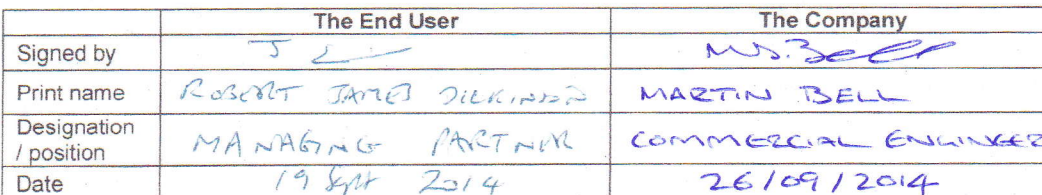 The End User The Company
Signed by M.D. Bell
Print name ROBERT JAMES DICKINSON MARTIN BELL
Designation / position MANAGING PARTNER COMMERCIAL ENGINEER
Date 19 Sept 2014 26/09/2014